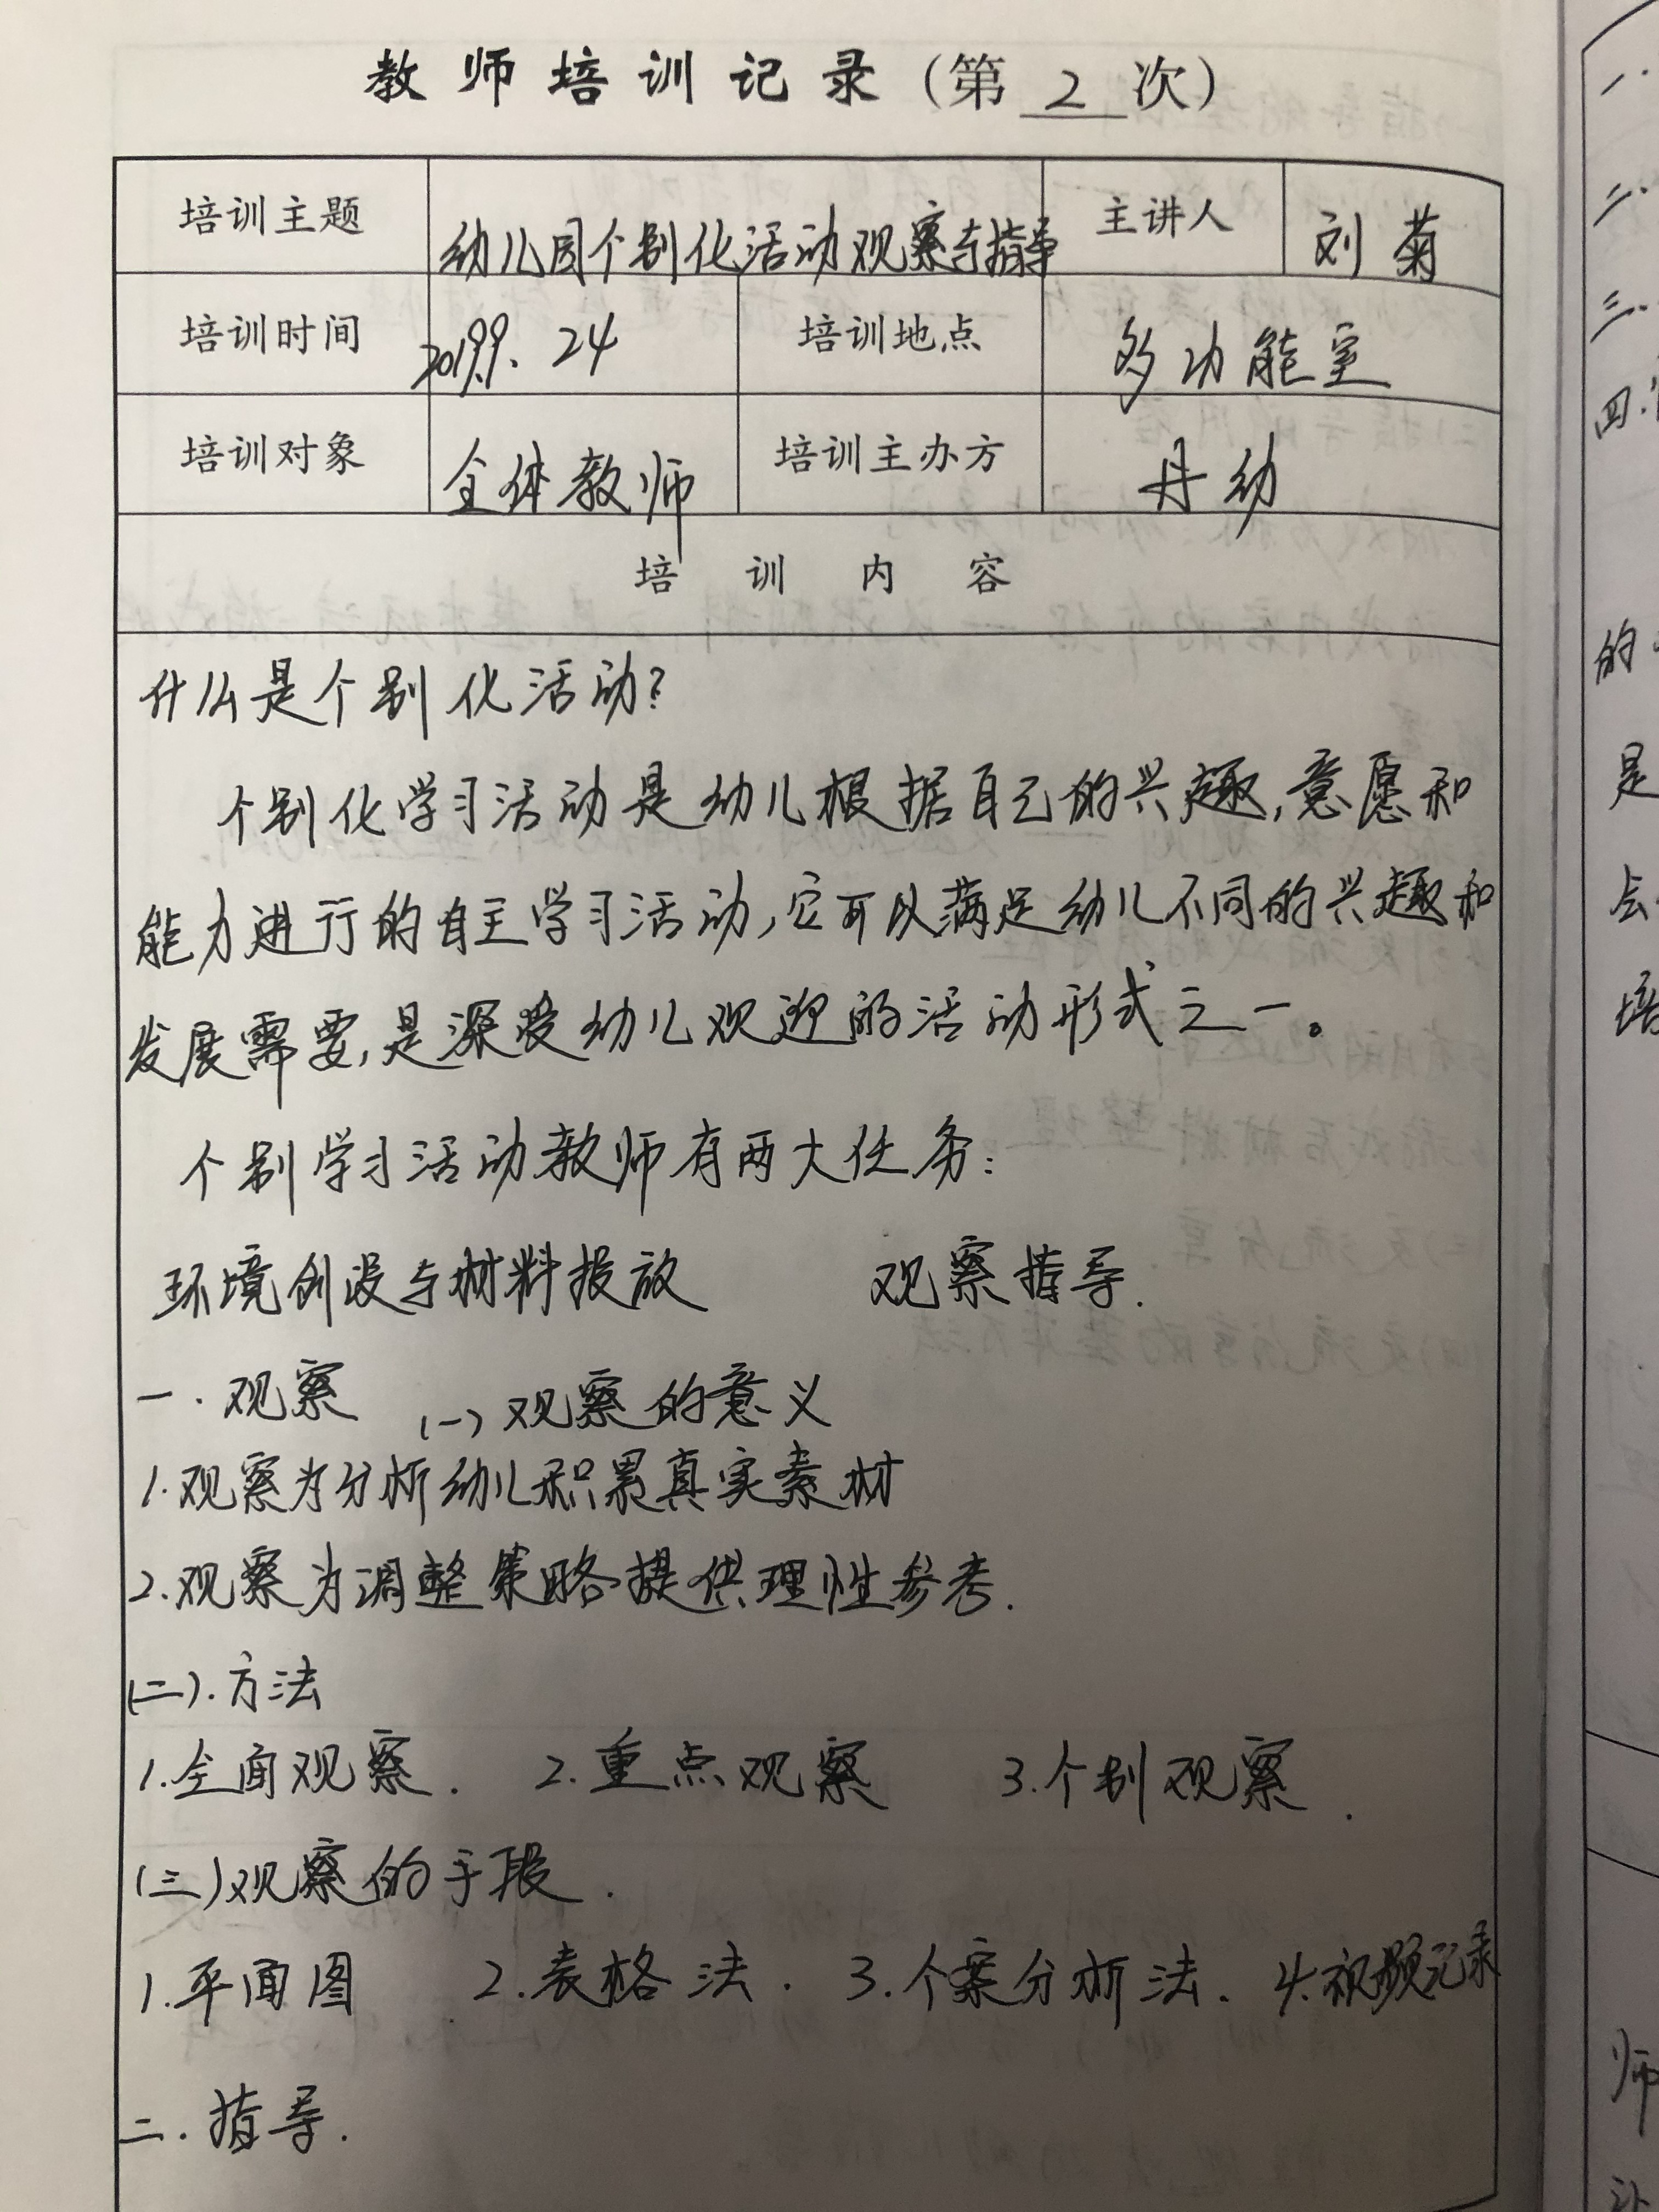 教师培训记录（第 2 次）
培训主题 幼儿园个别化活动观察与指导 主讲人 刘菊
培训时间 2019.9.24 培训地点 多功能室
培训对象 全体教师 培训主办方 丹幼
培训内容
什么是个别化活动?
个别化学习活动是幼儿根据自己的兴趣,意愿和
能力进行的自主学习活动,它可以满足幼儿不同的兴趣和
发展需要,是深受幼儿欢迎的活动形式之一。
个别学习活动教师有两大任务:
环境创设与材料投放 观察指导.
一.观察 (一)观察的意义
1.观察为分析幼儿积累真实素材
2.观察为调整策略提供理性参考.
(二).方法
1.全面观察. 2.重点观察 3.个别观察.
(三)观察的手段.
1.平面图 2.表格法. 3.个案分析法. 4.视频记录
二.指导.
一.
二.
三.
四.
的
是
会
培
师